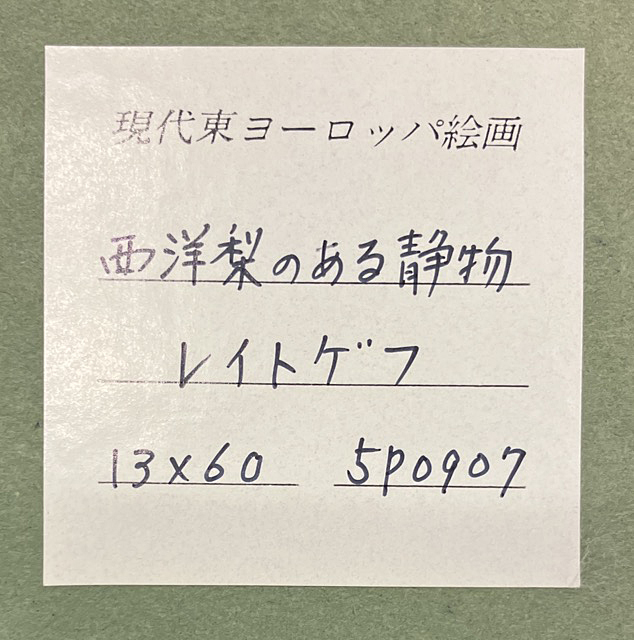 現代東ヨーロッパ絵画
西洋梨のある静物
レイトゲフ
13×60 5P0907